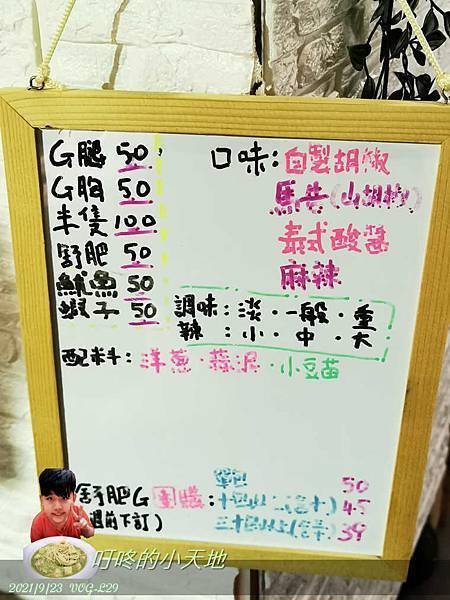 G腿 50
G胸 50
半隻 100
舒肥 50
魷魚 50
蝦子 50
口味：自製胡椒
馬告（山胡椒）
泰式酸醬
麻辣
調味：淡・一般・重
辣：小・中・大
配料：洋蔥・蒜泥・小豆苗
單包 50
舒肥G團購：十包以上（含十）45
（週前下訂）三十包以上（含三十）39
叮咚的小天地
2021/9/23 VOG-L29